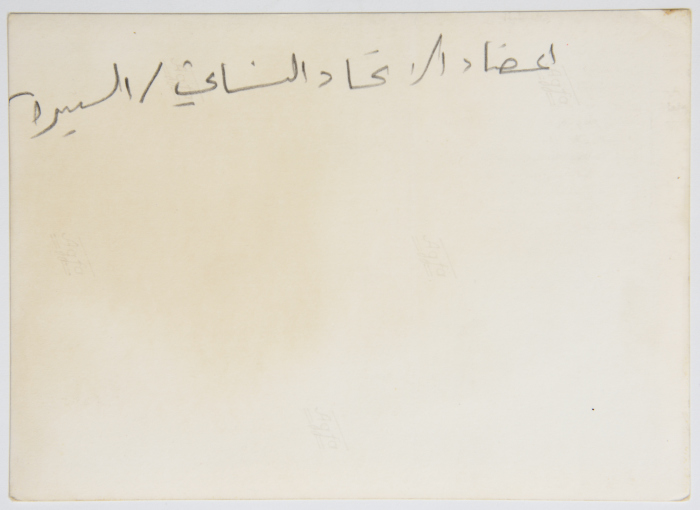 اعضاء الاتحاد النسائي / البيرة